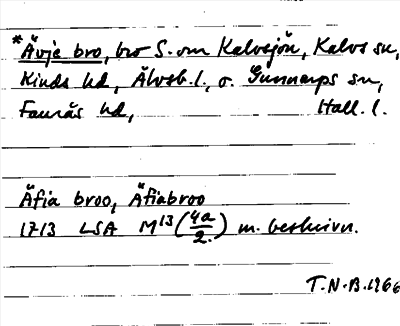 *Ävje bro, bro S. om Kalvsjön, Kalvs sn,
Kinds hd, Älvsb. l., o. Gunnarps sn,
Faurås hd, Hall. l.
Äfia broo, Äfiabroo
1713 LSA M13 (4a/2) m. beskrivn.
T.N-B. 1966